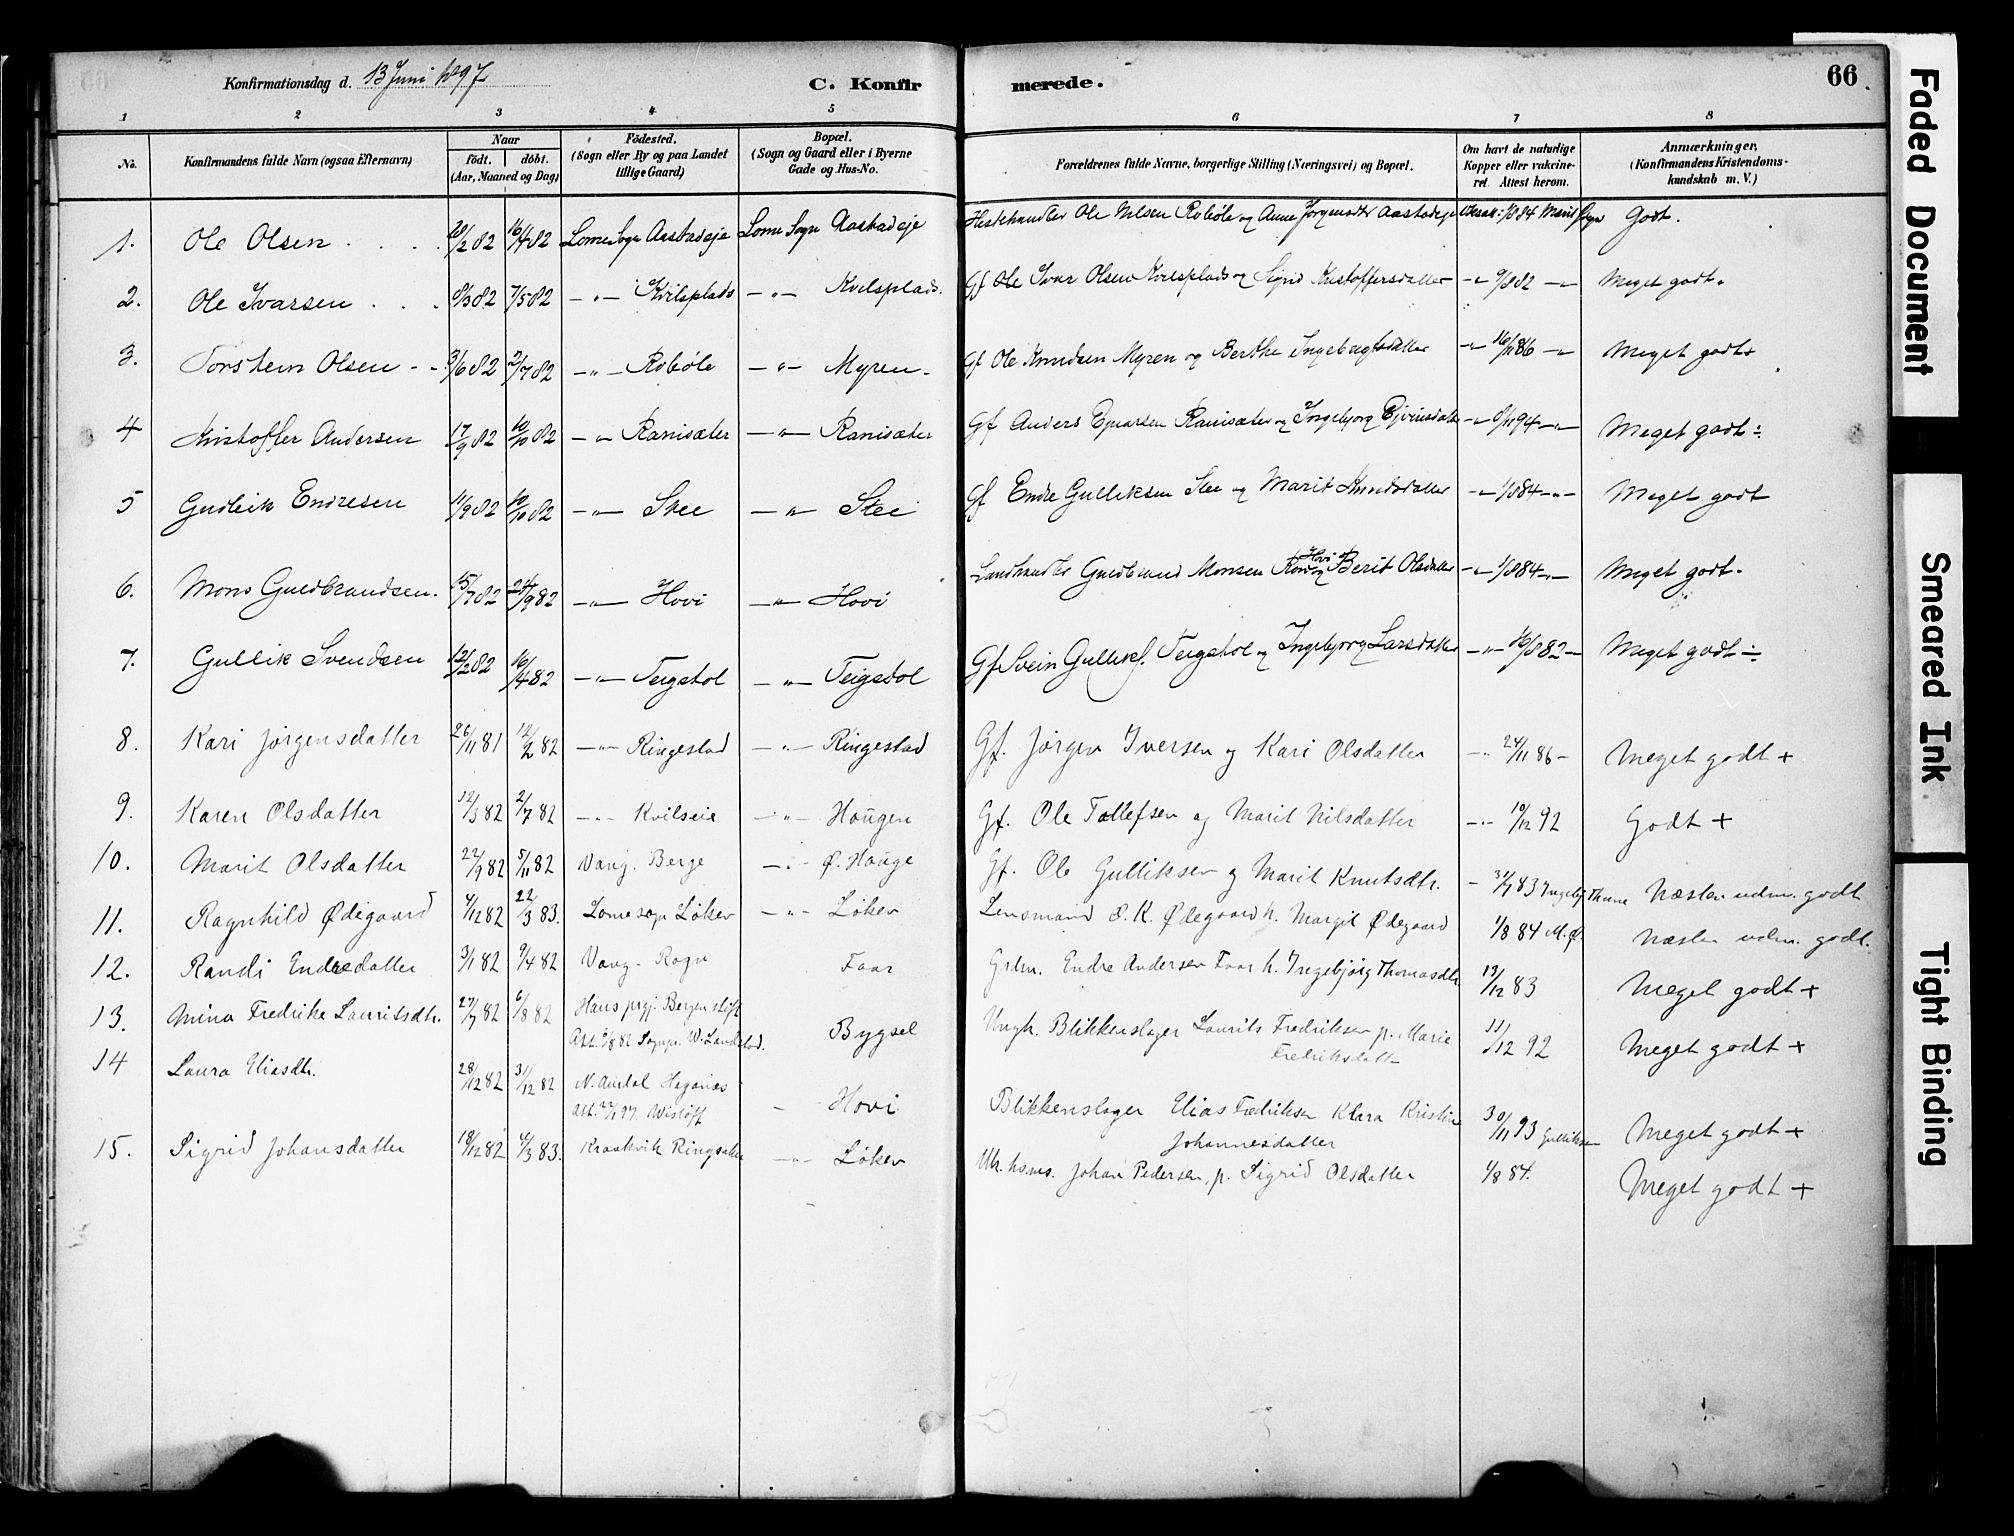 Konfirmationsdag d. 13 Juni 1897
C. Konfirmerede.
66
1 2 3 4 5 6 7 8
No.
Konfirmandens fulde Navn (ogsaa Efternavn)
Naar
født. døbt.
(Aar, Maaned og Dag)
Fødested.
(Sogn eller By og paa Landet
tillige Gaard)
Bopæl.
(Sogn og Gaard eller i Byerne
Gade og Hus-No.
Forældrenes fulde Navne, borgerlige Stilling (Næringsvei) og Bopæl.
Om havt de naturlige
Kopper eller vakcine-
ret Attest herom.
Anmærkninger,
(Konfirmandens Kristendoms-
kundskab m. V.)
1. Ole Olsen 20/2 82 16/4 82 Lome Sogn Aastadeje Lome Sogn Aastadeje Hestehandler Ole Nilsen Robøle og Anne Jørgensdtr Aastadeje 1/8 84 Godt.
2. Ole Ivarsen 8/3 82 7/5 82 -"- Kvilsplads -"- Kvilsplads. Gf Ole Ivar Olsen Kvilsplads og Sigrid Kristoffersdatter -"- 9/8 82 -"- Meget godt.
3. Torstein Olsen 3/6 82 2/7 82 -"- Robøle -"- Myren Gf Ole Knudsen Myren og Berthe Ingebrigtsdatter -"- 16/11 86 -"- Meget godt+
4 Kristoffer Andersen 17/9 82 10/10 82 -"- Ranisæter -"- Ranisæter Gf Anders Ejnarsen Ranisæter og Ingebjorg Ejvinsdatter -"- 8/11 94 -"- Meget godt÷
5 Gudleik Endresen 11/9 82 10/10 82 -"- Stee -"- Stei Gf Endre Gulliksen Stee og Marit Knudsdatter -"- 1/8 84 -"- Meget godt
6. Mons Guldbrandsen. 15/7 82 24/9 82 -"- Hovi -"- Hovi Landhandler Guldbrand Monsen Hovi og Berit Olsdatter -"- 1/8 84 -"- Meget godt.
7. Gullik Svendsen 12/2 82 16/4 82 -"- Teigstol -"- Teigstol Gf Svein Gulliks. Teigstol og Ingebjorg Larsdatter -"- 16/8 82 - Meget godt÷
8. Kari Jørgensdatter 26/11 81 12/2 82 -"- Ringestad -"- Ringestad Gf. Jørgen Iversen og Kari Olsdatter -"- 24/11 86 - Meget godt +
9. Karen Olsdatter 12/3 82 2/7 82 -"- Kvilseie -"- Haugen Gf. Ole Tollefsen og Marit Nilsdatter -"- 10/12 92 Godt +
10. Marit Olsdatter 22/9 82 5/11 82 Vang. Berge -"- Ø. Hauge Gf. Ole Gulliksen og Marit Knutsdtr. - 31/7 83 Ingebj Thune Næsten udm. godt
11. Ragnhild Ødegaard 4/12 82 22/3 83. Lomesogn Løken -"- Løken Lensmand O. K. Ødegaard h. Margit Ødegaard 1/8 84 M. Ø. Næsten udm. godt.
12. Randi Endredatter 3/1 82 9/4 82 Vang - Rogn Faar Grdm. Endre Andersen Faar h. Ingebjørg Thomasdtr 13/12 83 Meget godt +
13. Mina Fredrike Lauritsdtr. 27/7 82 6/8 82 Haus prgj. Bergen stift Bygsel Ungk. Blikkenslager Laurits Fredriksen p. Marie 11/12 92 Meget godt +
Fredriksdatter
14 Laura Eliasdtr. 28/12 82 31/12 82 N. Aurdal Haganæs - Hovi Blikkenslager Elias Fredriksen Klara Kristine 30/11 93 Gulliksen Meget godt +
Johannesdatter
15. Sigrid Johansdatter 18/12 82 4/3 83. Kraakvik Ringsaker -"- Løken Johan Pedersen, p. Sigrid Olsdatter 1/8 84. Meget godt +
Faded Document
Smeared Ink
Tight Binding